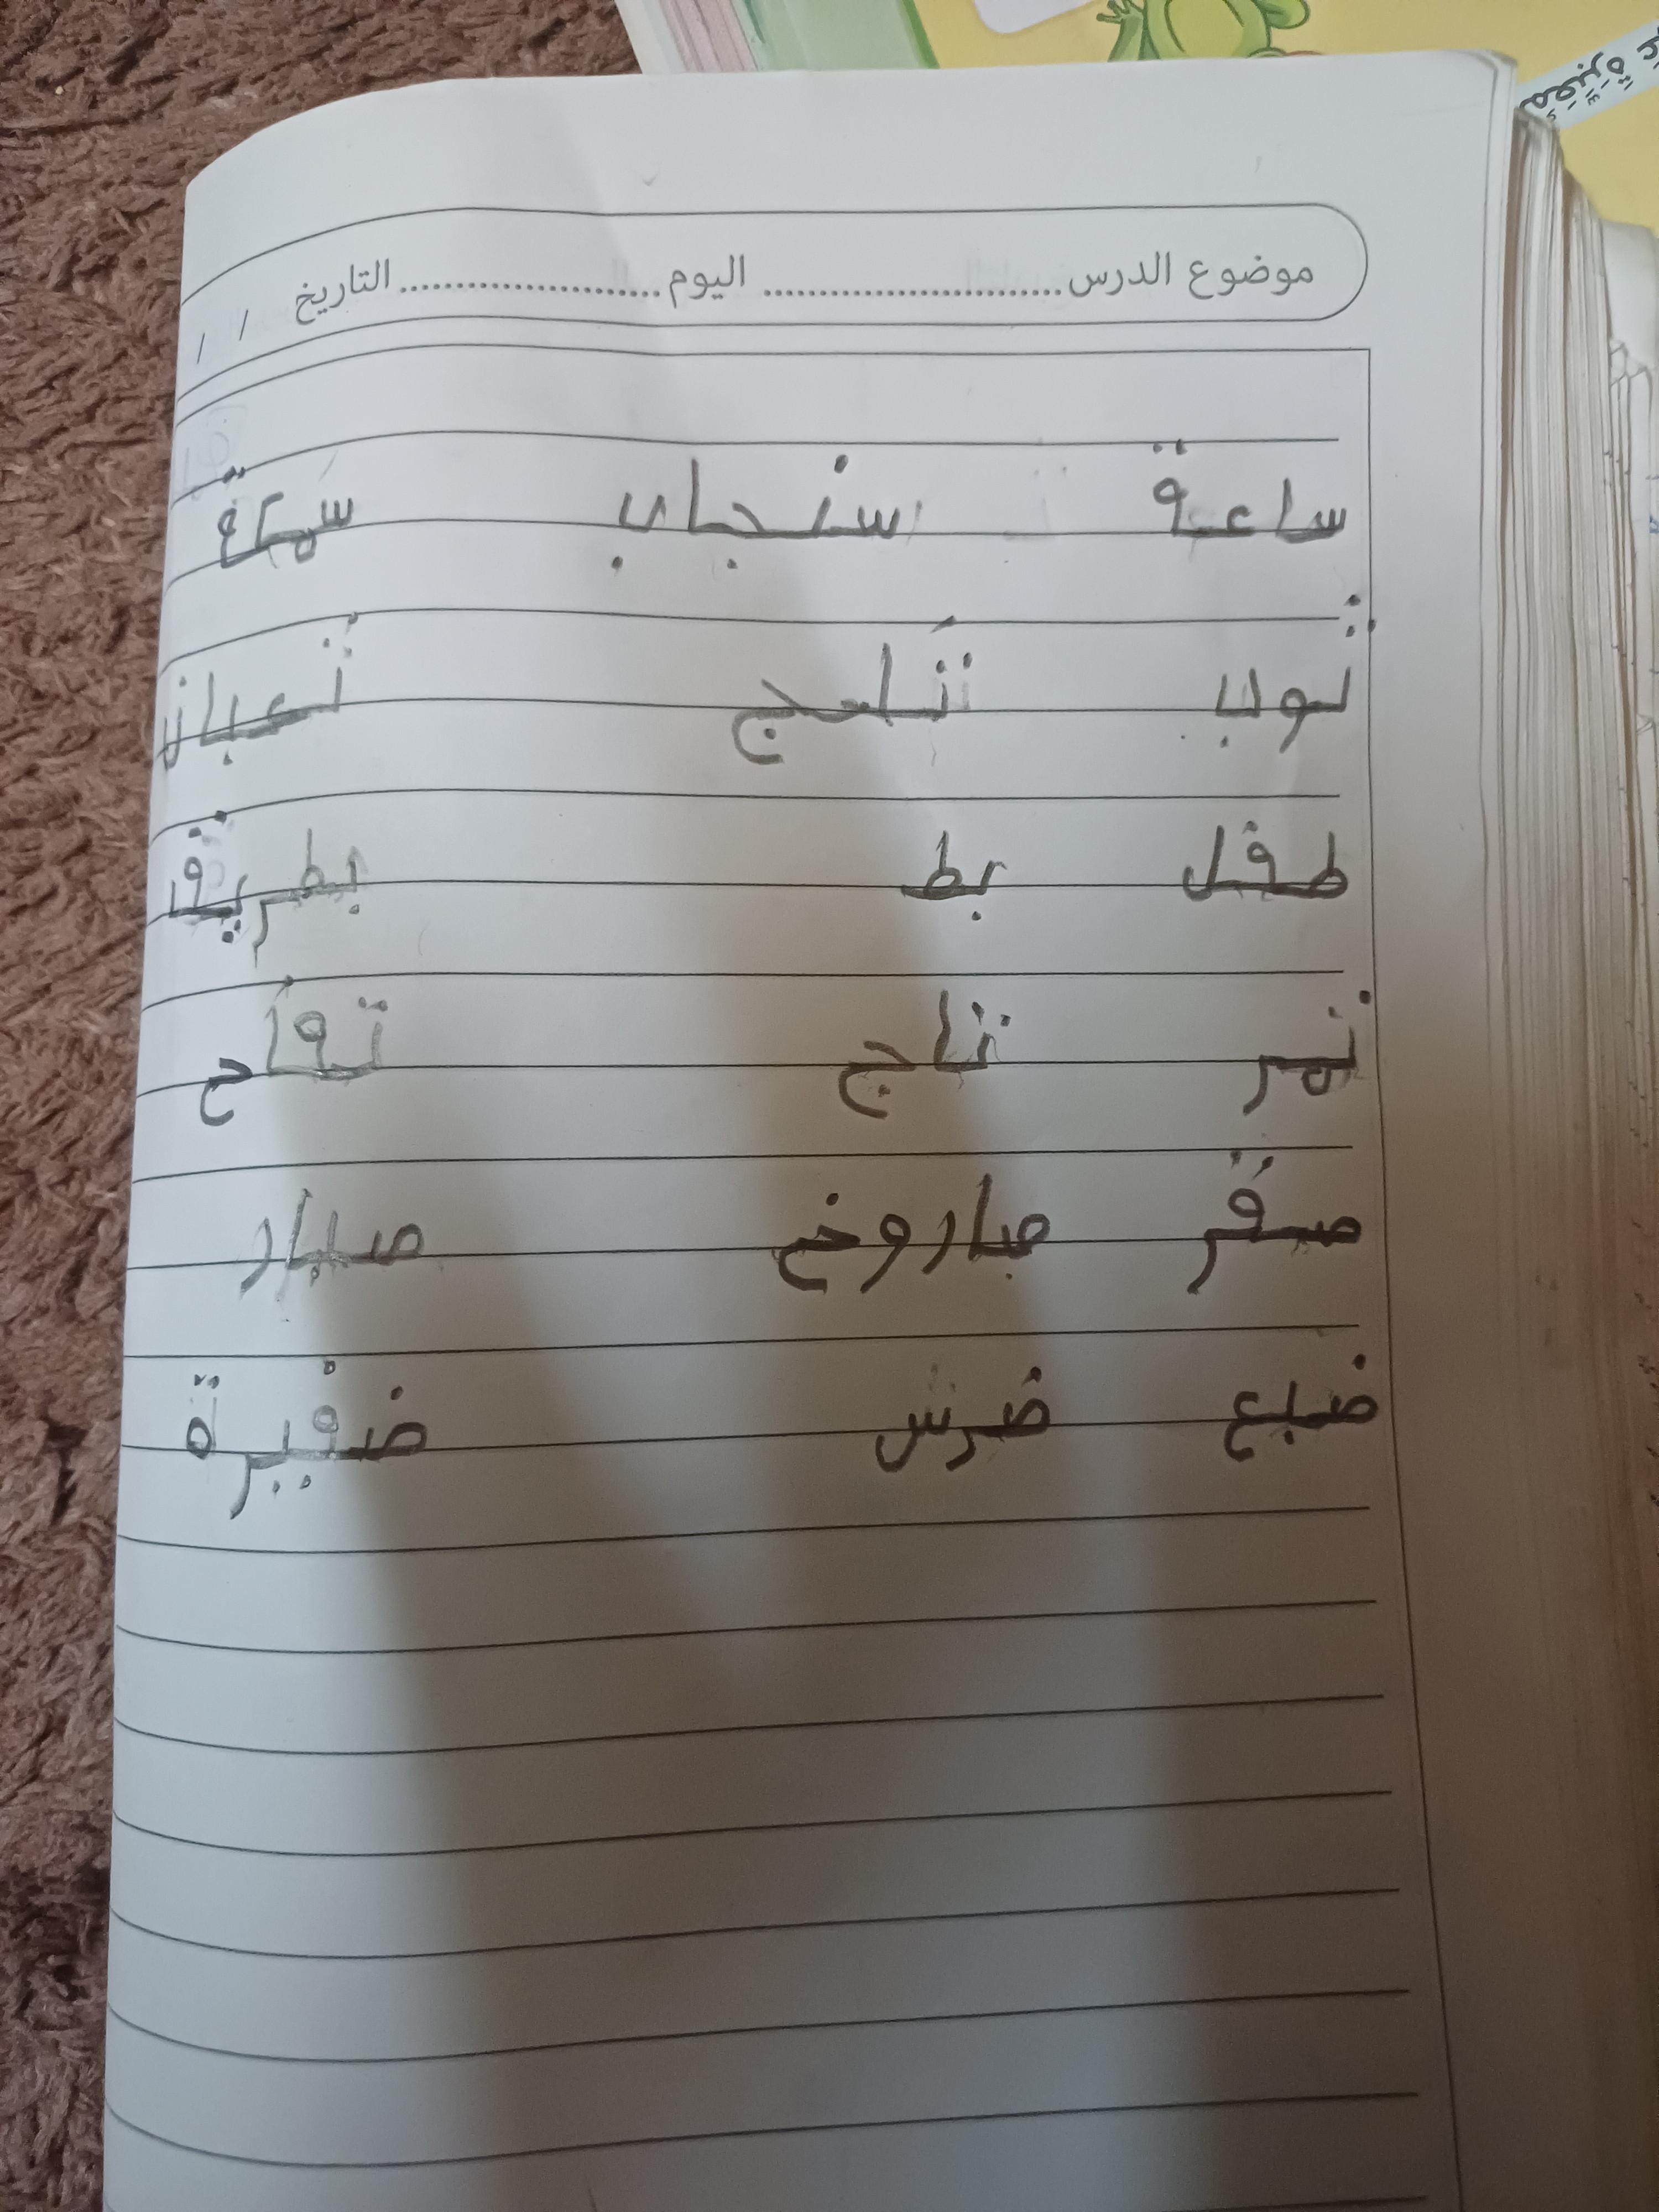 موضوع الدرس.......................... اليوم....................... التاريخ / /
ساعة سنجاب
ثوب ثلج ثعبان
طفل بط بطريق
تمر تاج تفاح
صقر صاروخ صبار
ضبع ضرس ضفيرة